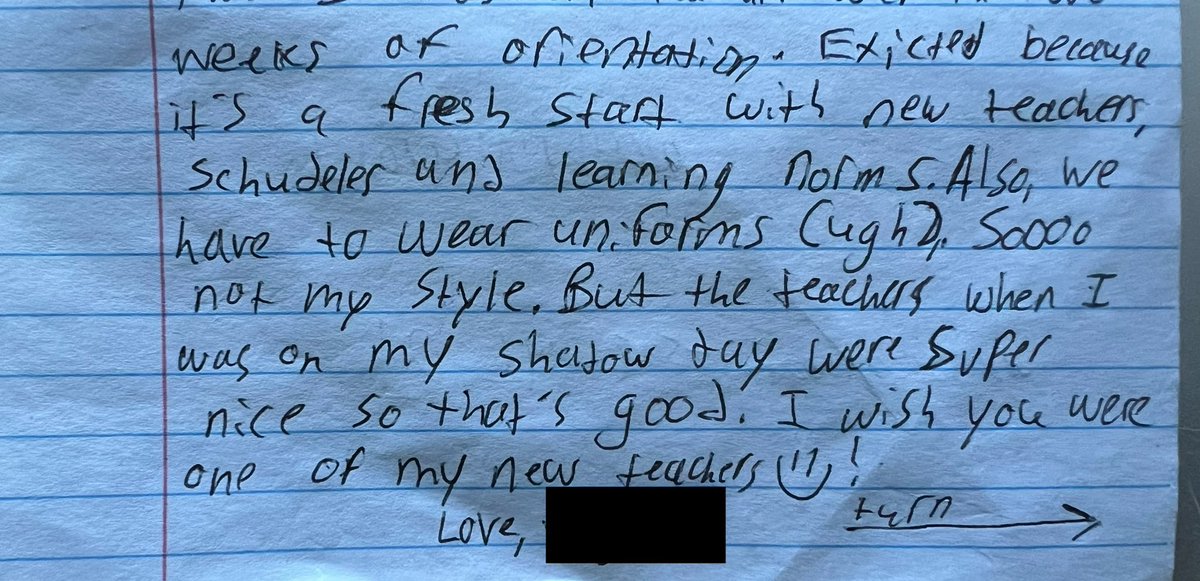 weeks of orientation. Exicted because
it's a fresh start with new teachers,
schudeler and learning norms. Also, we
have to wear uniforms (ugh). Soooo
not my style. But the teachers when I
was on my shadow day were super
nice so that's good. I wish you were
one of my new teachers !
Love,
turn